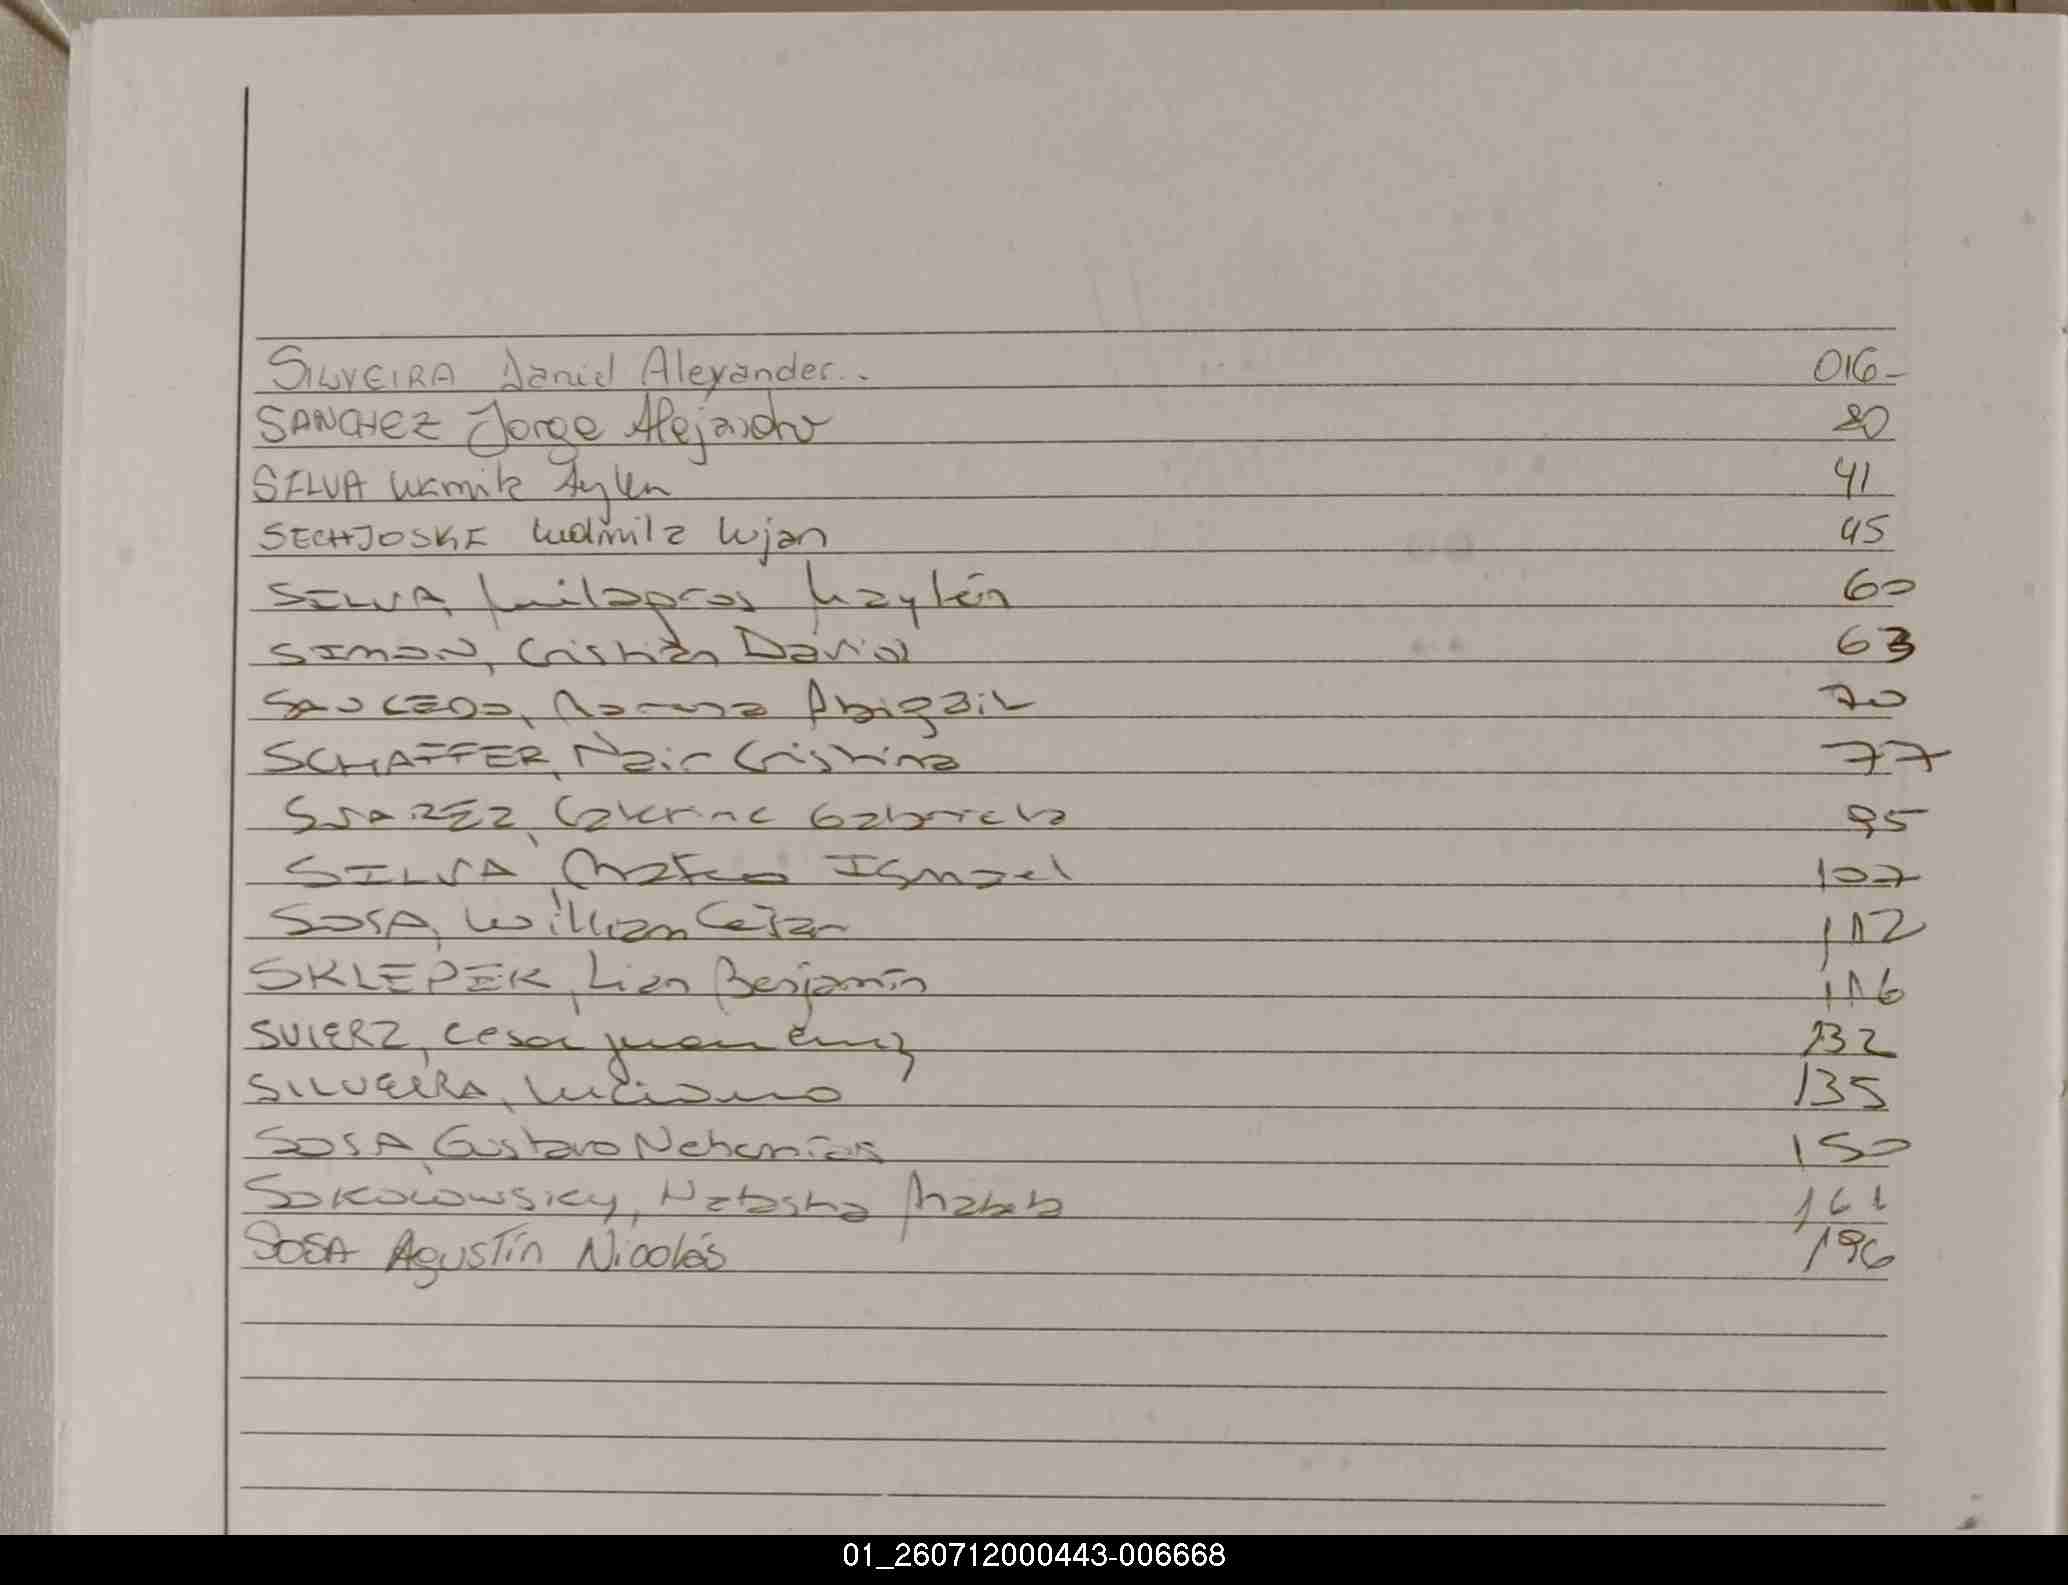 SILVEIRA Daniel Alexander.. 016-
SANCHEZ Jorge Alejandro 20
SILVA Yamila Aylen 41
SECHJOSKI Ludmila Lujan 45
SILVA, Milagros Maylén 60
SIMON, Cristián David 63
SAUCEDO, Abigail 70
SCHAFFER, Nair Cristina 77
SUAREZ, Caterine Gabriela 95
SILVA, Mateo Ismael 107
SOSA, William Cesar 112
SKLEPEK, Lian Benjamín 116
SUIERZ, Cesar Juan 132
SILVEIRA, Luciano 135
SOSA, Gustavo Nehemías 150
SOKOLOWSKY, Natasha 161
SOSA Agustín Nicolás 196
01_260712000443-006668